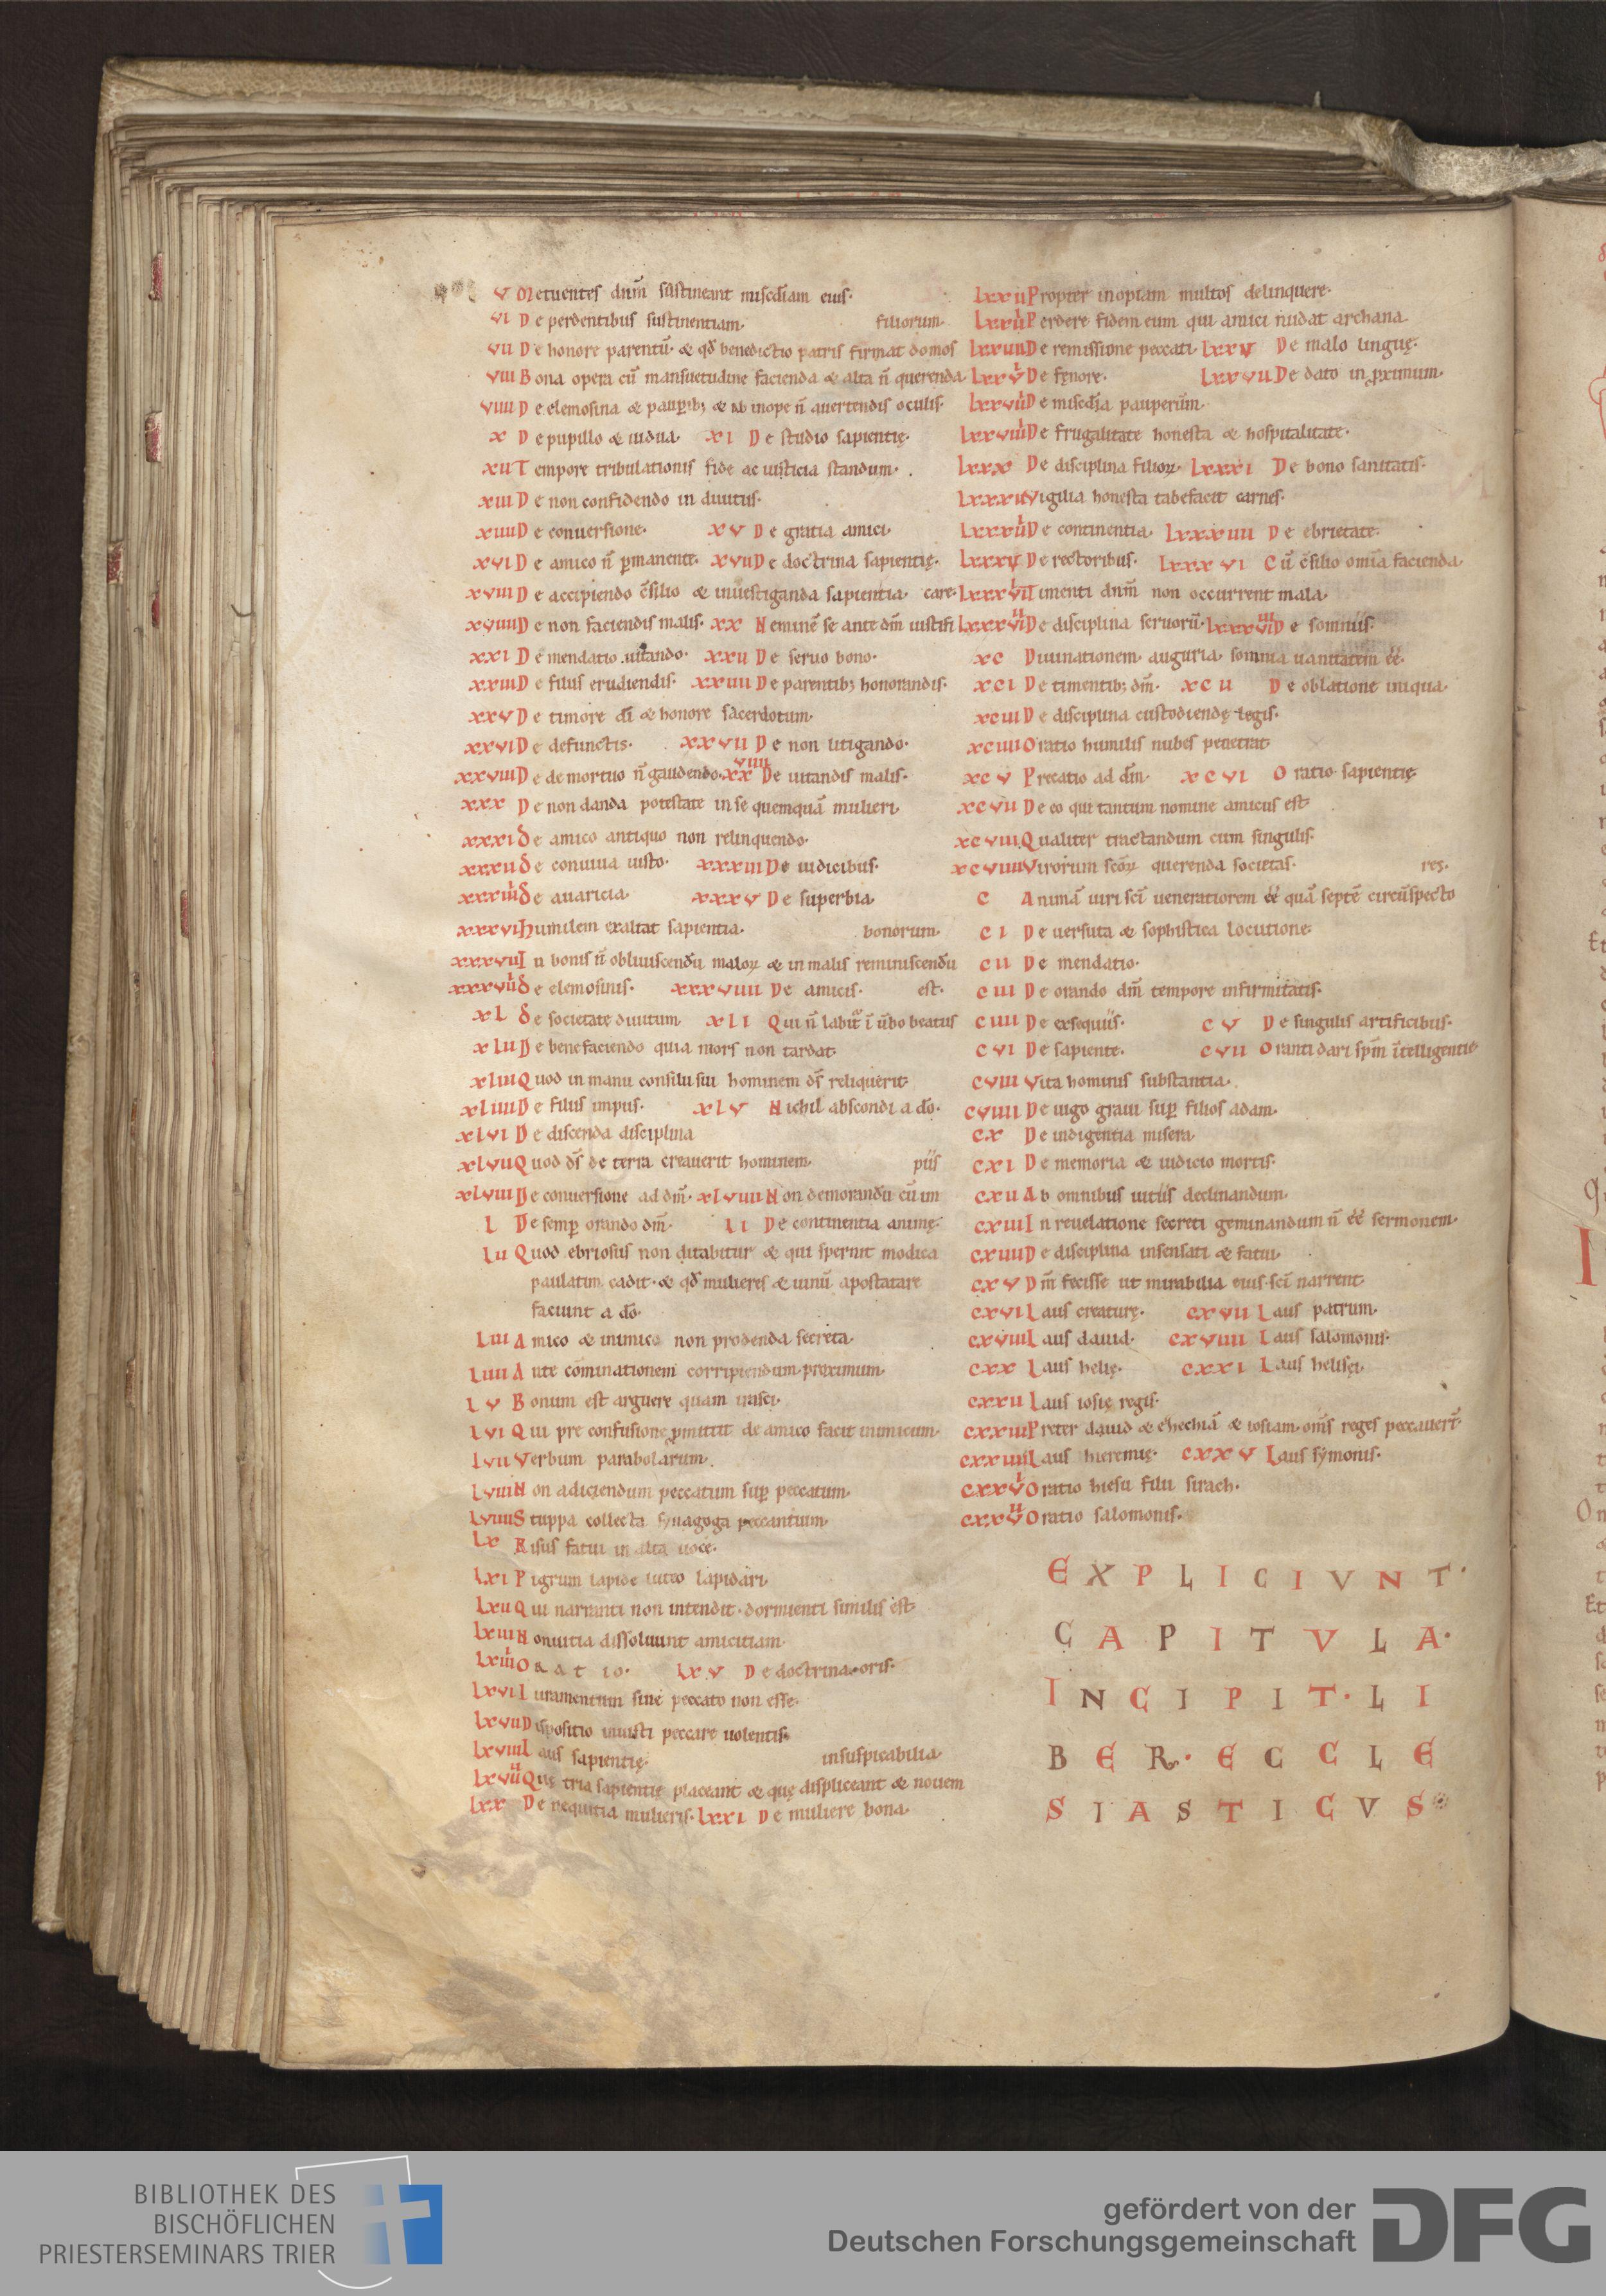 V Metuentes dnm̄ sustineant misedīam eius·
VI De perdentibus sustinentiam· filiorum·
VII De honore parentū· & qđ benedictio patris firmat domos
VIII Bona opera cū mansuetudine facienda & alta n̄ querenda·
VIIII De elemosina & paup̱ib; & ab inope n̄ auertendis oculis·
X De pupillo & uidua· XI De studio sapientię·
XII Tempore tribulationis fide ac iusticia standum·
XIII De non confidendo in diuitiis·
XIIII De conuersione· XV De gratia amici·
XVI De amico n̄ ꝑmanente· XVII De doctrina sapientię·
XVIII De accipiendo c̄silio & inuestiganda sapientia· care·
XVIIII De non faciendis malis· XX Neminē se ante dm̄ iustifi
XXI De mendatio uitando· XXII De seruo bono·
XXIII De filiis erudiendis· XXIIII De parentib; honorandis·
XXV De timore dī & honore sacerdotum·
XXVI De defunctis· XXVII De non litigando·
XXVIII De de mortuo n̄ gaudendo· XXVIIII De uitandis malis·
XXX De non danda potestate in se quemquā mulieri·
XXXI De amico antiquo non relinquendo·
XXXII De conuiua iusto· XXXIII De iudicibus·
XXXIIII De auaricia· XXXV De superbia·
XXXVI Humilem exaltat sapientia· bonorum·
XXXVII In bonis n̄ obliuiscendū maloꝝ & in malis reminiscendū
XXXVIII De elemosinis· XXXVIIII De amicis· est·
XL De societate diuitum· XLI Qui n̄ labit᷑ ī ūbo beatus
XLII De benefaciendo quia mors non tardat·
XLIII Quod in manu consilii sui hominem ds̄ reliquerit·
XLIIII De filiis impiis· XLV Nichil abscondi a dō·
XLVI De discenda disciplina
XLVII Quod ds̄ de terra creauerit hominem· piis
XLVIII De conuersione ad dm̄· XLVIIII Non demorandū cū im
L De semꝑ orando dm̄· LI De continentia animę·
LII Quod ebriosus non ditabitur & qui spernit modica
paulatim cadit· & qđ mulieres & uinū apostatare
faciunt a dō·
LIII Amico & inimico non prodenda secreta·
LIIII Ante cōminationem corripiendum proximum·
LV Bonum est arguere quam irasci·
LVI Qui pre confusione ꝓmittit de amico facit inimicum·
LVII Verbum parabolarum·
LVIII Non adiciendum peccatum suꝑ peccatum·
LVIIII Stuppa collecta synagoga peccantium·
LX Risus fatui in alta uoce·
LXI Pigrum lapide luteo lapidari·
LXII Qui narranti non intendit· dormienti similis est·
LXIII Conuitia dissoluunt amicitiam·
LXIIII Oratio· LXV De doctrina oris·
LXVI Iuramentum sine peccato non esse·
LXVII Dispositio iniusti peccare uolentis·
LXVIII Laus sapientię· insuspicabilia·
LXVIIII Quę tria sapientię placeant & quę displiceant & nouem
LXX De nequitia mulieris· LXXI De muliere bona·
LXXII Propter inopiam multos delinquere·
LXXIII Perdere fidem eum qui amici nudat archana·
LXXIIII De remissione peccati· LXXV De malo linguę·
LXXVI De fęnore· LXXVII De dato in ꝓximum·
LXXVIII De misedīa pauperum·
LXXVIIII De frugalitate honesta & hospitalitate·
LXXX De disciplina filioꝝ· LXXXI De bono sanitatis·
LXXXII Vigilia honesta tabefacit carnes·
LXXXIII De continentia· LXXXIIII De ebrietate·
LXXXV De rectoribus· LXXXVI Cū c̄silio omīa facienda·
LXXXVII Timenti dnm̄ non occurrent mala·
LXXXVIII De disciplina seruorū· LXXXVIIII De somniis·
XC Diuinationem· auguria· somnia uanitatem ēē·
XCI De timentib; dm̄· XCII De oblatione iniqua·
XCIII De disciplina custodiendę legis·
XCIIII Oratio humilis nubes penetrat·
XCV Precatio ad dm̄· XCVI Oratio sapientię·
XCVII De eo qui tantum nomine amicus est·
XCVIII Qualiter tractandum cum singulis·
XCVIIII Virorum scōꝝ querenda societas· res·
C Animā uiri scī ueneratiorem ēē quā septē circūspecto
CI De uersuta & sophistica locutione·
CII De mendatio·
CIII De orando dm̄ tempore infirmitatis·
CIIII De exsequiis· CV De singulis artificibus·
CVI De sapiente· CVII Oranti dari spm̄ ītelligentię·
CVIII Vita hominis substantia·
CVIIII De iugo graui suꝑ filios adam·
CX De indigentia misera·
CXI De memoria & iudicio mortis·
CXII Ab omnibus uitiis declinandum·
CXIII In reuelatione secreti geminandum n̄ ēē sermonem·
CXIIII De disciplina insensati & fatui·
CXV Dm̄ fecisse ut mirabilia eius scī narrent·
CXVI Laus creaturę· CXVII Laus patrum·
CXVIII Laus dauid· CXVIIII Laus salomonis·
CXX Laus helię· CXXI Laus helisei·
CXXII Laus iosię regis·
CXXIII Preter dauid & ezhechiā & iosiam· oms̄ reges peccauer̄t·
CXXIIII Laus hieremię· CXXV Laus symonis·
CXXVI Oratio hiesu filii sirach·
CXXVII Oratio salomonis·
EXPLICIVNT·
CAPITVLA·
INCIPIT·LI
BER·ECCLE
SIASTICVS
BIBLIOTHEK DES
BISCHÖFLICHEN
PRIESTERSEMINARS TRIER
gefördert von der
Deutschen Forschungsgemeinschaft
DFG